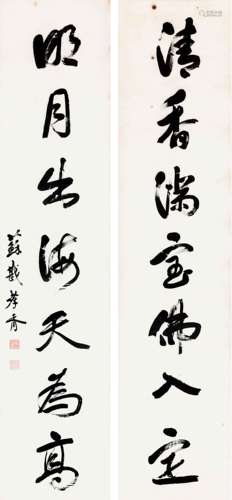 清香满室佛入定
明月出海天為高
蘇戡孝胥